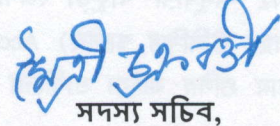 মৈত্রী চক্রবর্তী
সদস্য সচিব,